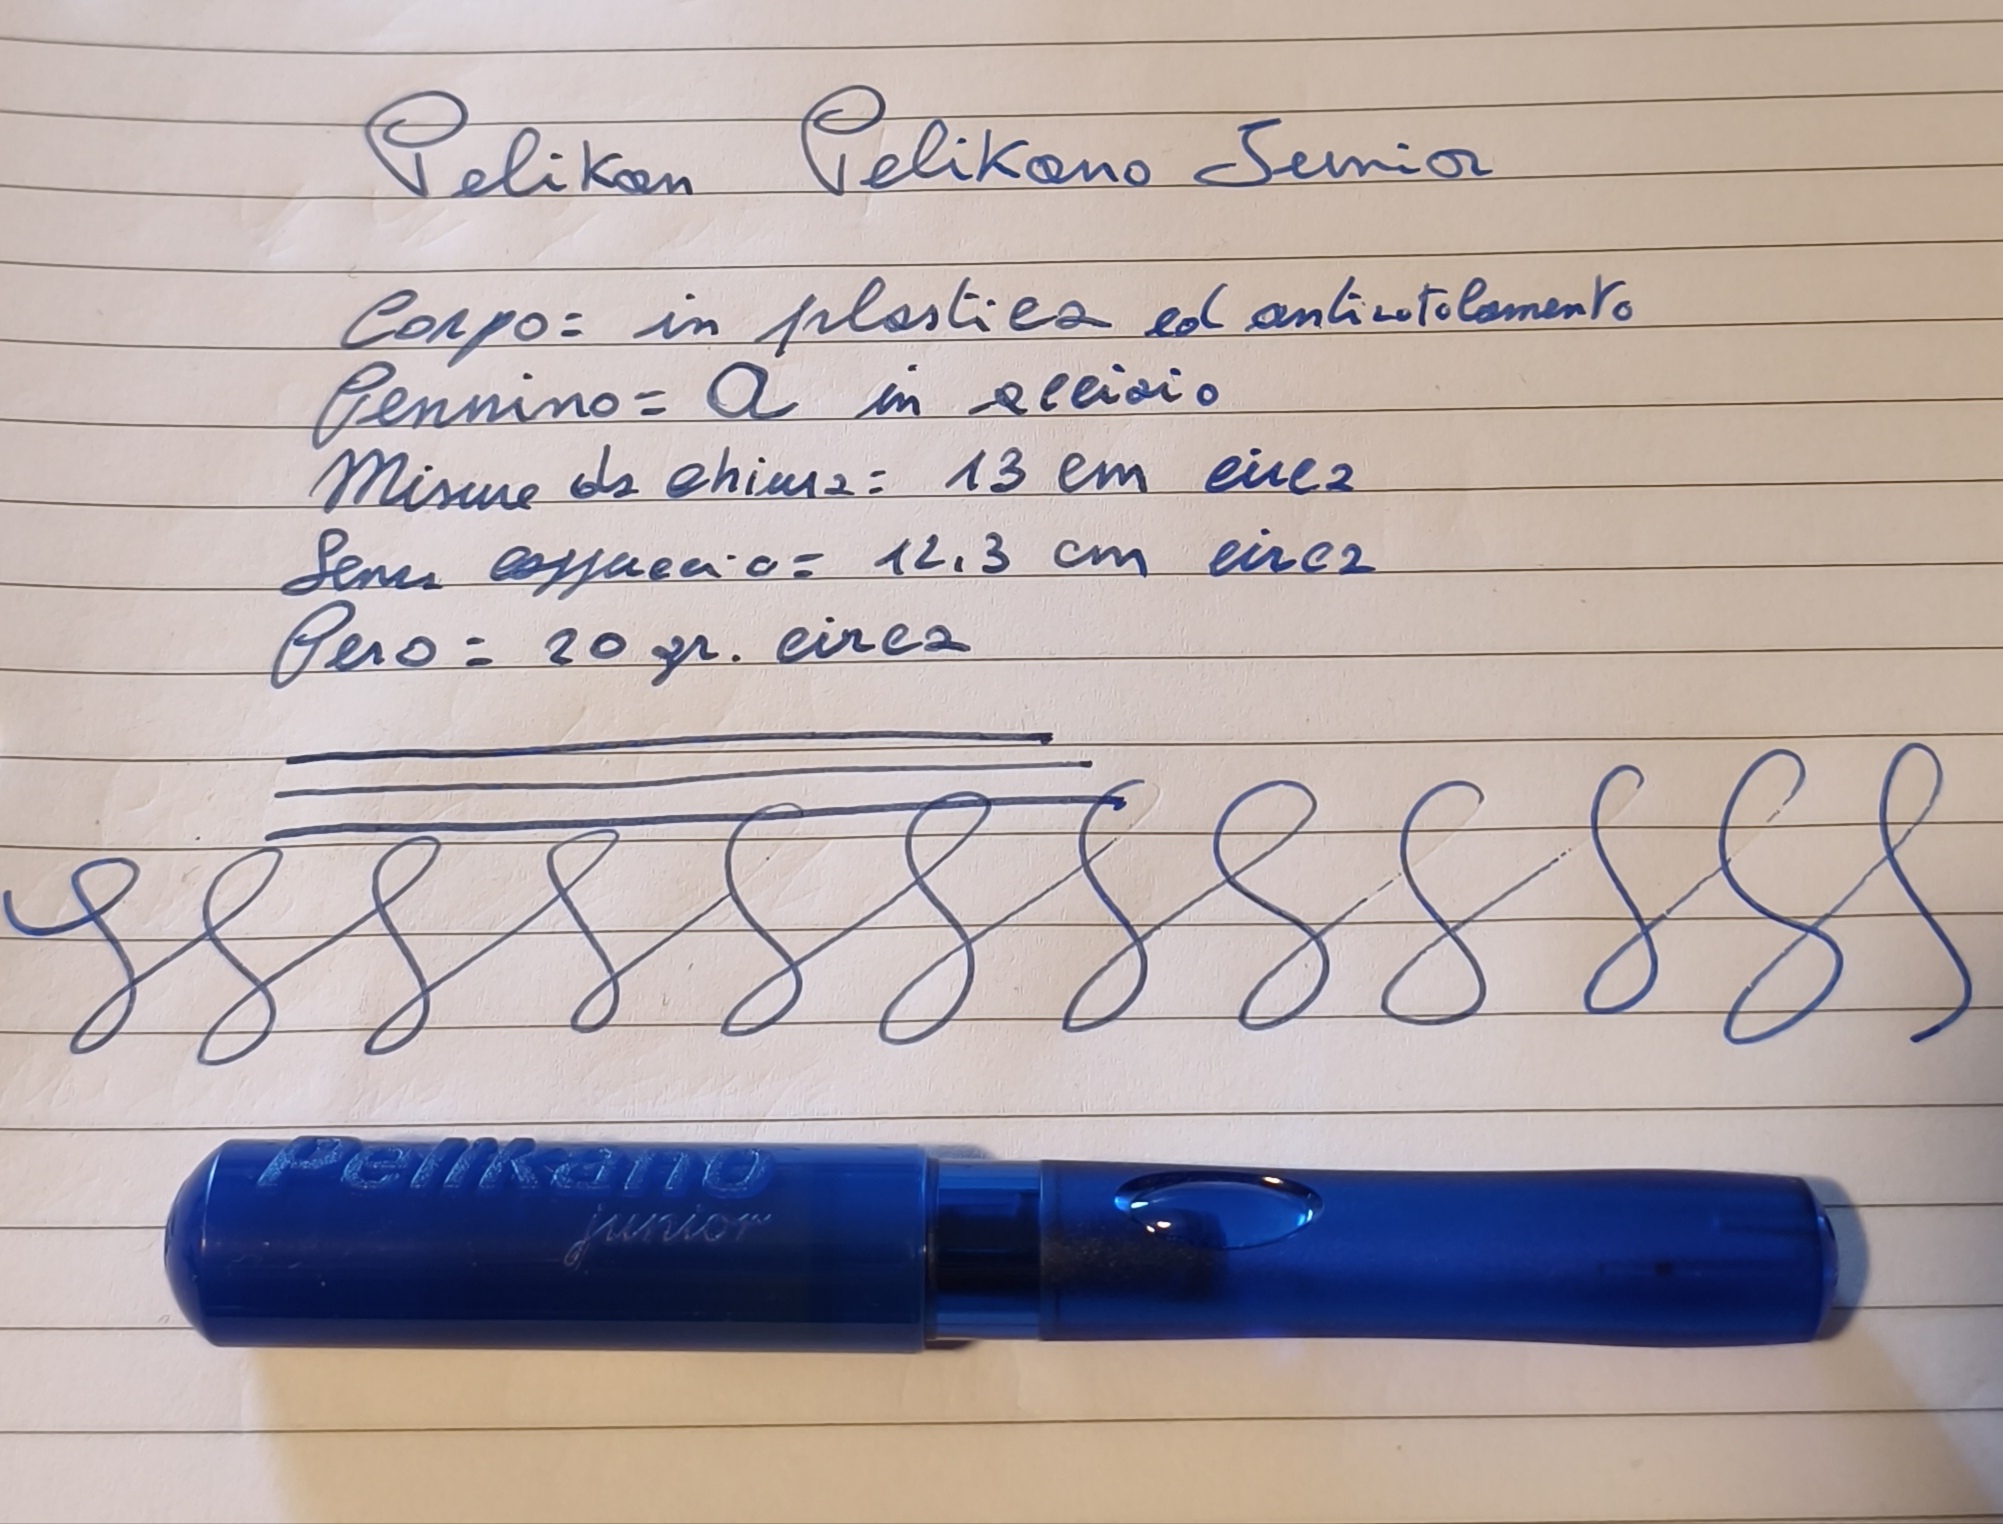 Pelikan Pelikano Junior
Corpo= in plastica ed antirotolamento
Pennino= A in acciaio
Misure da chiusa= 13 cm circa
Senza cappuccio= 12,3 cm circa
Peso= 20 gr. circa
Pelikano
junior